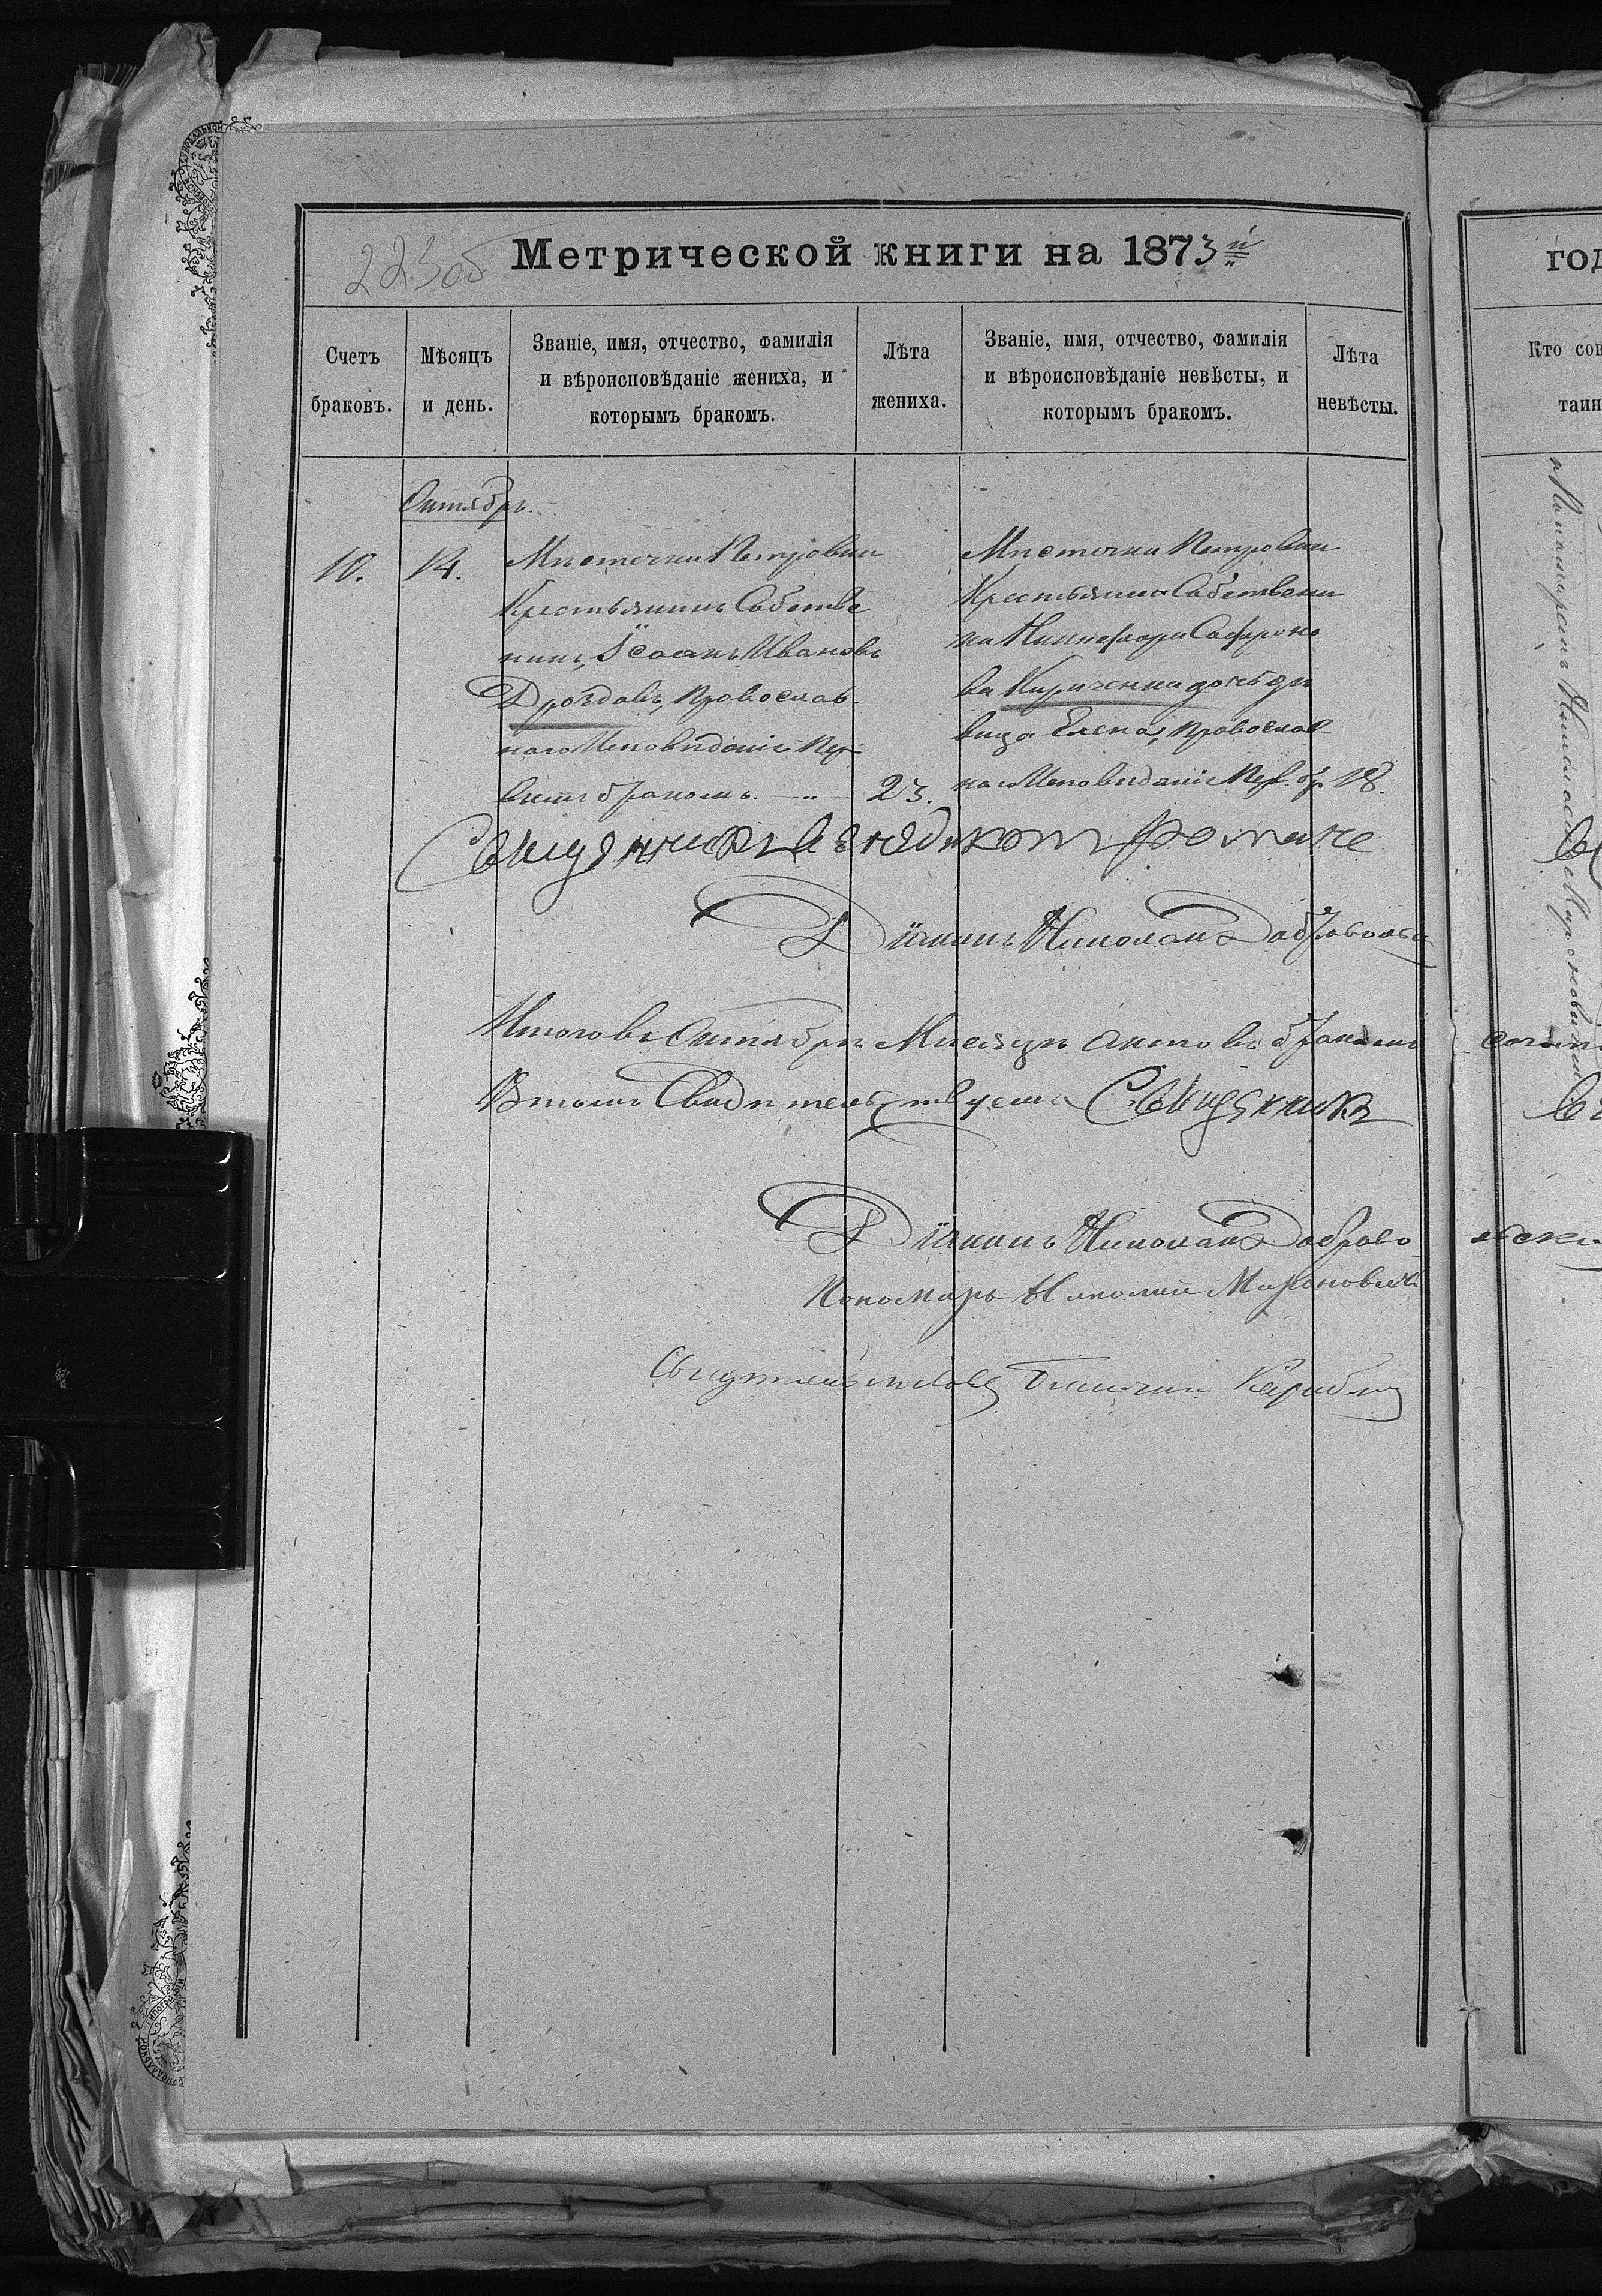 223об Метрической книги на 1873й
Счетъ браковъ.
Мѣсяцъ и день.
Званіе, имя, отчество, фамилія
и вѣроисповѣданіе жениха, и
которымъ бракомъ.
Лѣта
жениха.
Званіе, имя, отчество, фамилія
и вѣроисповѣданіе невѣсты, и
которымъ бракомъ.
Лѣта
невѣсты.
Октябрь.
10. 14.
Мѣстечка Петровки
Крестьянинъ Собстве
никъ, Іоаннъ Ивановъ
Дроздовъ, Православ
наго Исповѣданія Пер
вымъ бракомъ. 23.
Мѣстечка Петровки
Крестьянина Собствени
ка Никифора Софроно
ва Кириченка дочь дѣ
вица Елена, Православ
наго Исповѣданія Перв. бр. 18.
Священникъ Романо
Діаконъ Николай Добровольс
Итого въ Октябрѣ Мѣсяцѣ актовъ о бракахъ
Въ томъ Свидѣтельствуемъ Священникъ
Діаконъ Николай Доброво
Пономарь Николай
Свидѣтельствовалъ Благочин
год
Кто сов
таин
Пономаремъ Николаемъ